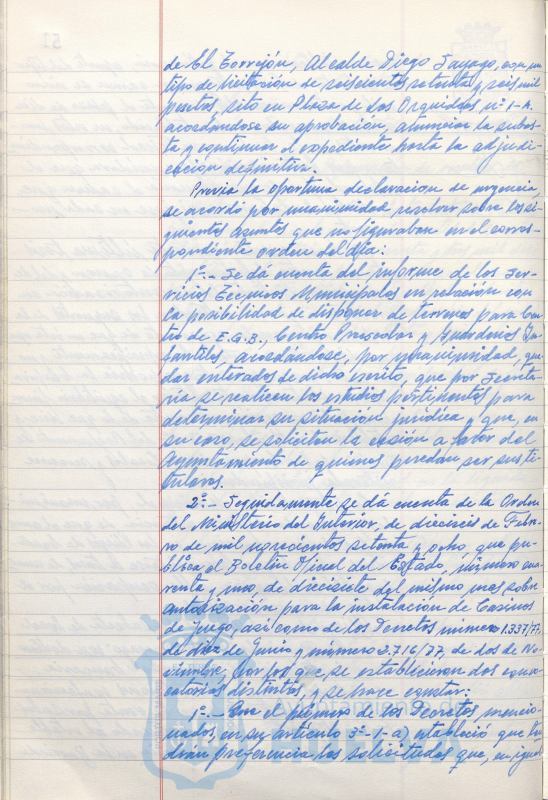 de El Torrejón, Alcalde Diego Sayago, con un
tipo de licitación de seiscientas setenta y seis mil
pesetas, sito en Plaza de Las Orquídeas nº 1-A.
acordándose su aprobación, anunciar la subas-
ta y continuar el expediente hasta la adjudi-
cación definitiva.
Previa la oportuna declaración de urgencia,
se acordó por unanimidad resolver sobre los si-
guientes asuntos que no figuraban en el corres-
pondiente orden del día:
1º.- Se dá cuenta del informe de los Ser-
vicios Técnicos Municipales en relación con
la posibilidad de disponer de terrenos para Cen-
tro de E.G.B., Centro Preescolar y Guarderías In-
fantiles, acordándose, por unanimidad, que-
dar enterados de dicho escrito, que por Secreta-
ria se realicen los estudios pertinentes para
determinar su situación jurídica y que, en
su caso, se soliciten la cesión a favor del
Ayuntamiento de quienes puedan ser sus ti-
tulares.
2º.- Seguidamente se dá cuenta de la Orden
del Ministerio del Interior, de dieciseis de Febre-
ro de mil novecientos setenta y ocho, que pu-
blica el Boletín Oficial del Estado, número cua-
renta y uno, de diecisiete del mismo mes sobre
autorización para la instalación de Casinos
de Juego, así como de los Decretos número 1.337/77,
de diez de Junio y número 2.716/77, de dos de No-
viembre, por los que se establecieron dos convo-
catorias distintas, y se hace constar:
1º.- Que el primero de los Decretos mencio-
nados, en su artículo 3º-1-a) estableció que ten-
drían preferencia las solicitudes que, en igual
Ayuntamiento de